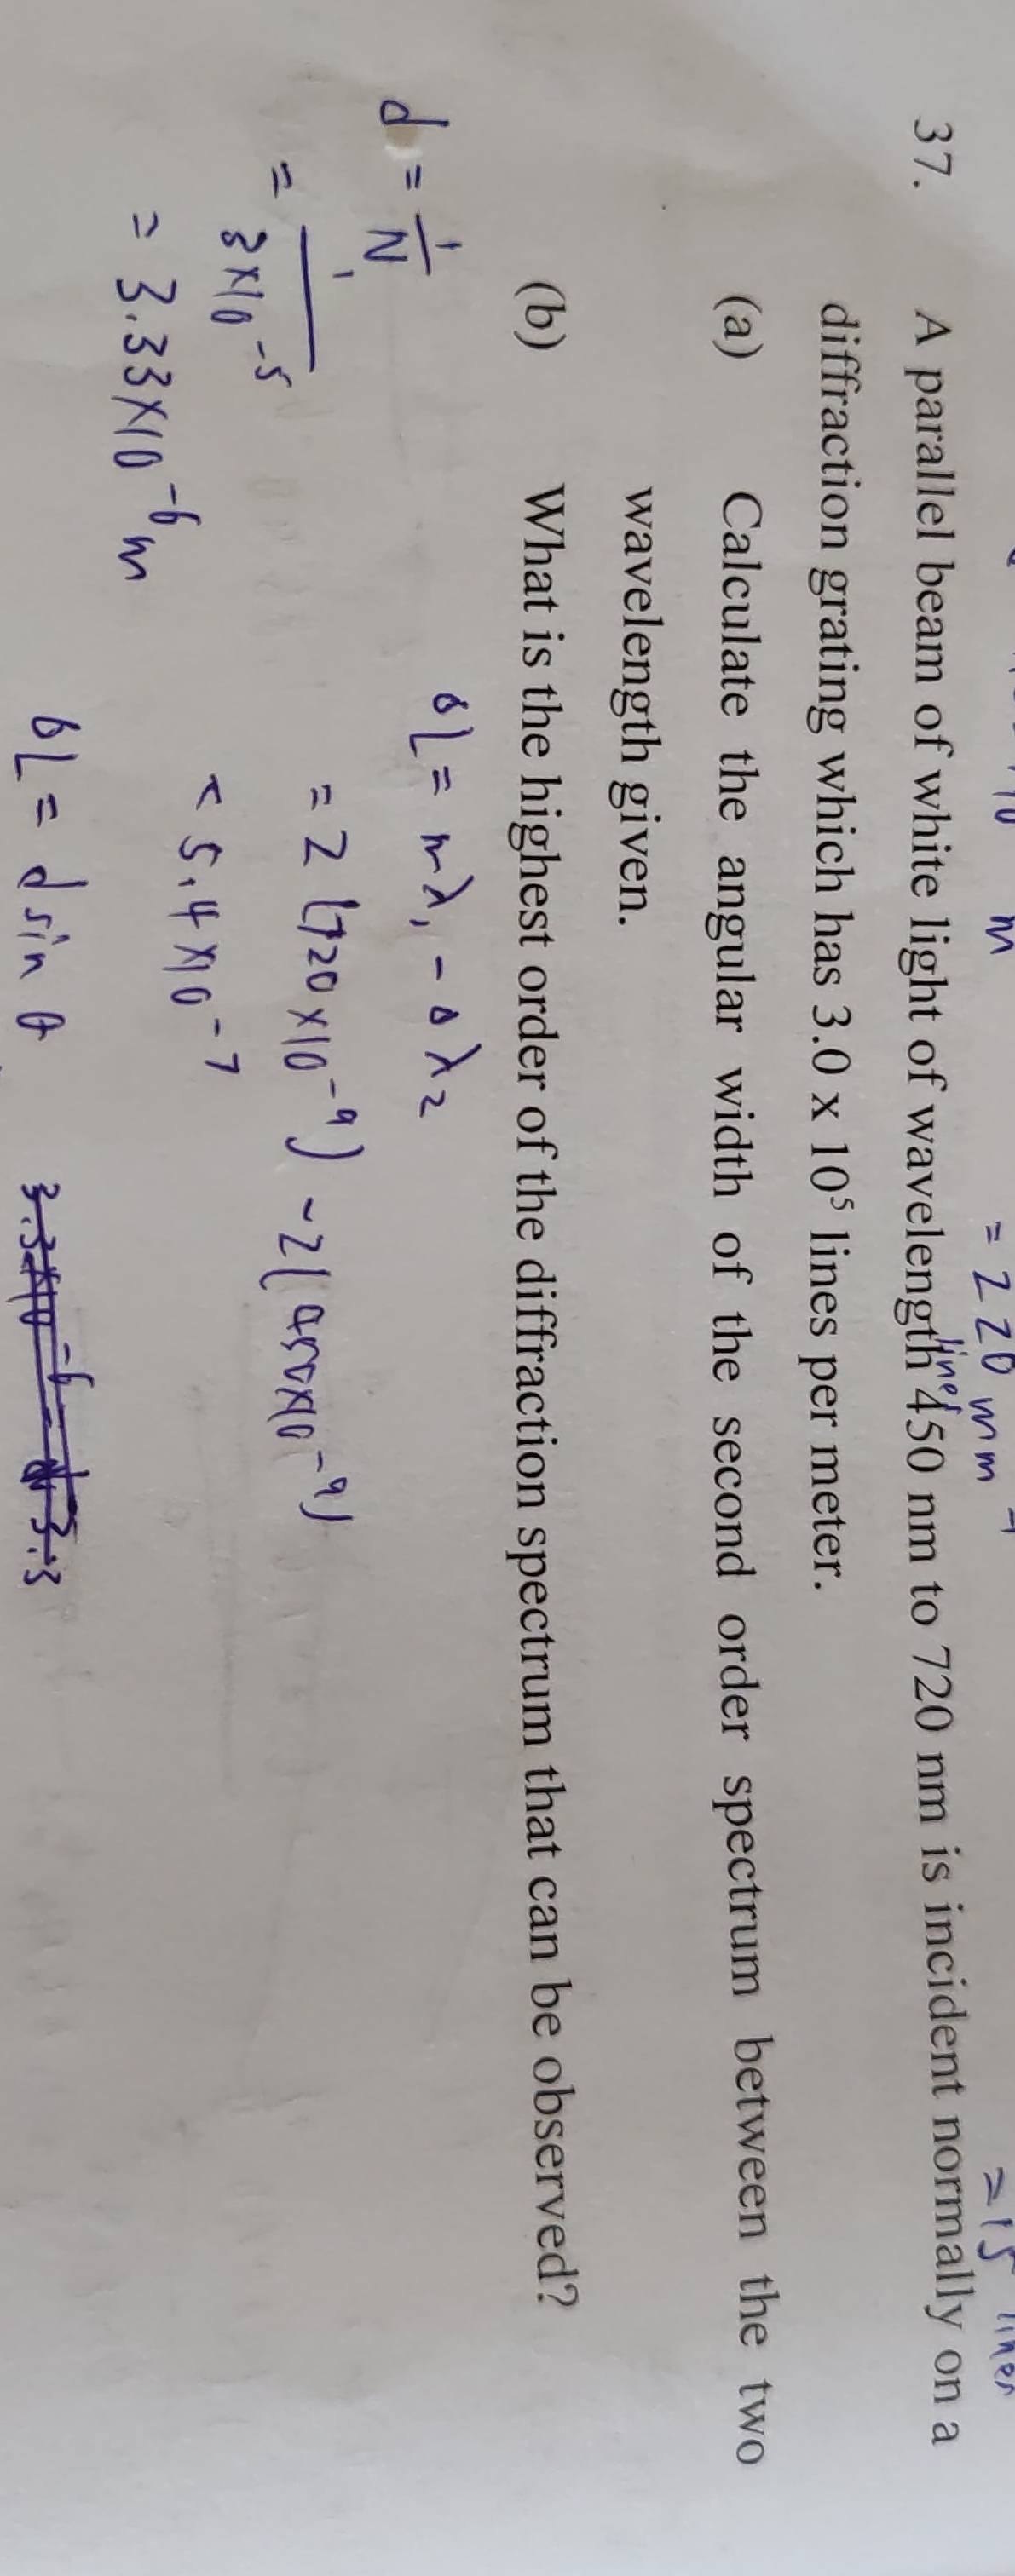 = 220 mm
= 15 lines
lines
37. A parallel beam of white light of wavelength 450 nm to 720 nm is incident normally on a
diffraction grating which has 3.0 x 10⁵ lines per meter.
(a) Calculate the angular width of the second order spectrum between the two
wavelength given.
(b) What is the highest order of the diffraction spectrum that can be observed?
d = 1/N
= 1/3×10⁻⁵
= 3.33×10⁻⁶ m
= 2 (720×10⁻⁹) - 2(450×10⁻⁹)
5.4×10⁻⁷
L = d sin θ